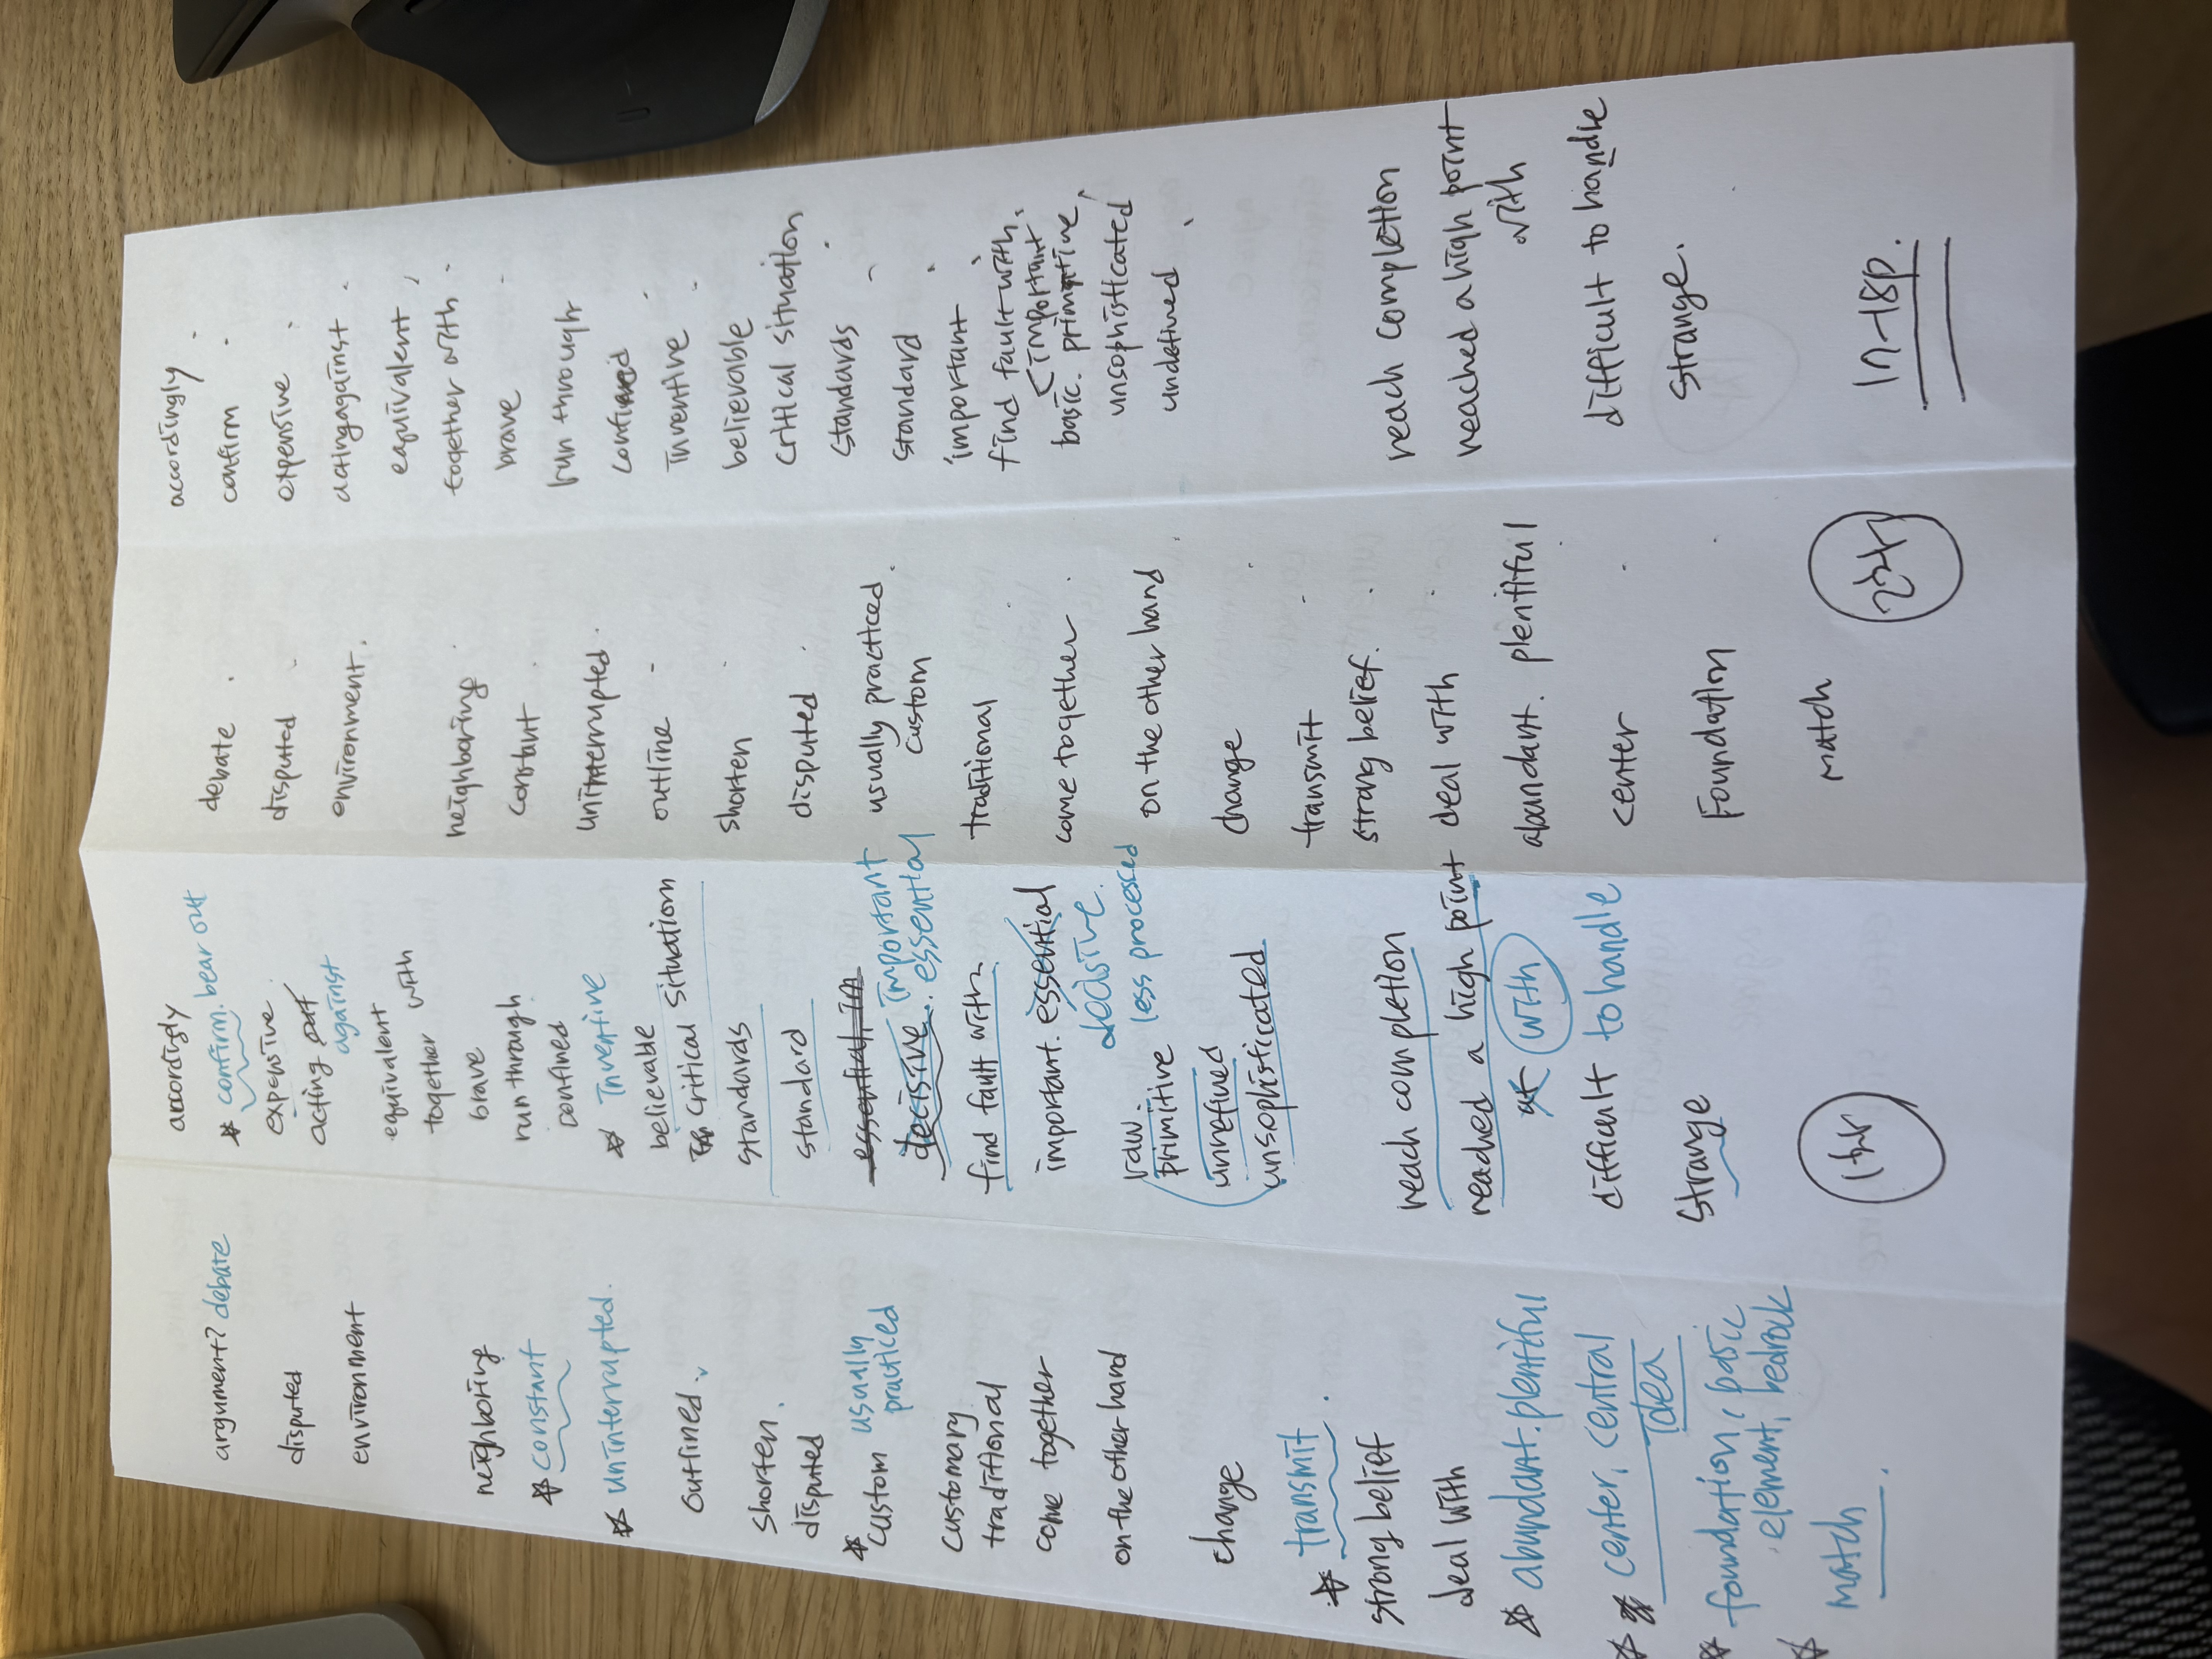 argument? debate
disputed
environment
neighboring
* constant
* uninterrupted.
outlined
shorten.
disputed
* custom usually
practiced
customary
traditional
come together
on the other hand
change
* transmit.
strong belief
deal with
* abundant. plentiful
* center, central
idea
* foundation, basic
element, bedrock
* match.
accordingly
* confirm. bear out
expensive
acting
against
equivalent
together with
brave
run through
confined
* inventive
believable
critical situation
standards
standard
essential
decisive. important
essential
find fault with
important. essential
decisive.
raw. less processed
primitive
unrefined
unsophisticated
reach completion
reached a high point
at with
difficult to handle
strange
debate
disputed
environment.
neighboring
constant
uninterrupted.
outline
shorten
disputed
usually practiced
custom
traditional
come together
on the other hand
change
transmit
strong belief.
deal with
abundant. plentiful
center
Foundation
match
accordingly
confirm
expensive
acting against
equivalent
together with
brave
run through
confined
inventive
believable
critical situation
standards
standard
important
find fault with.
important
basic. primitive
unsophisticated
undefined
reach completion
reached a high point
with
difficult to handle
strange.